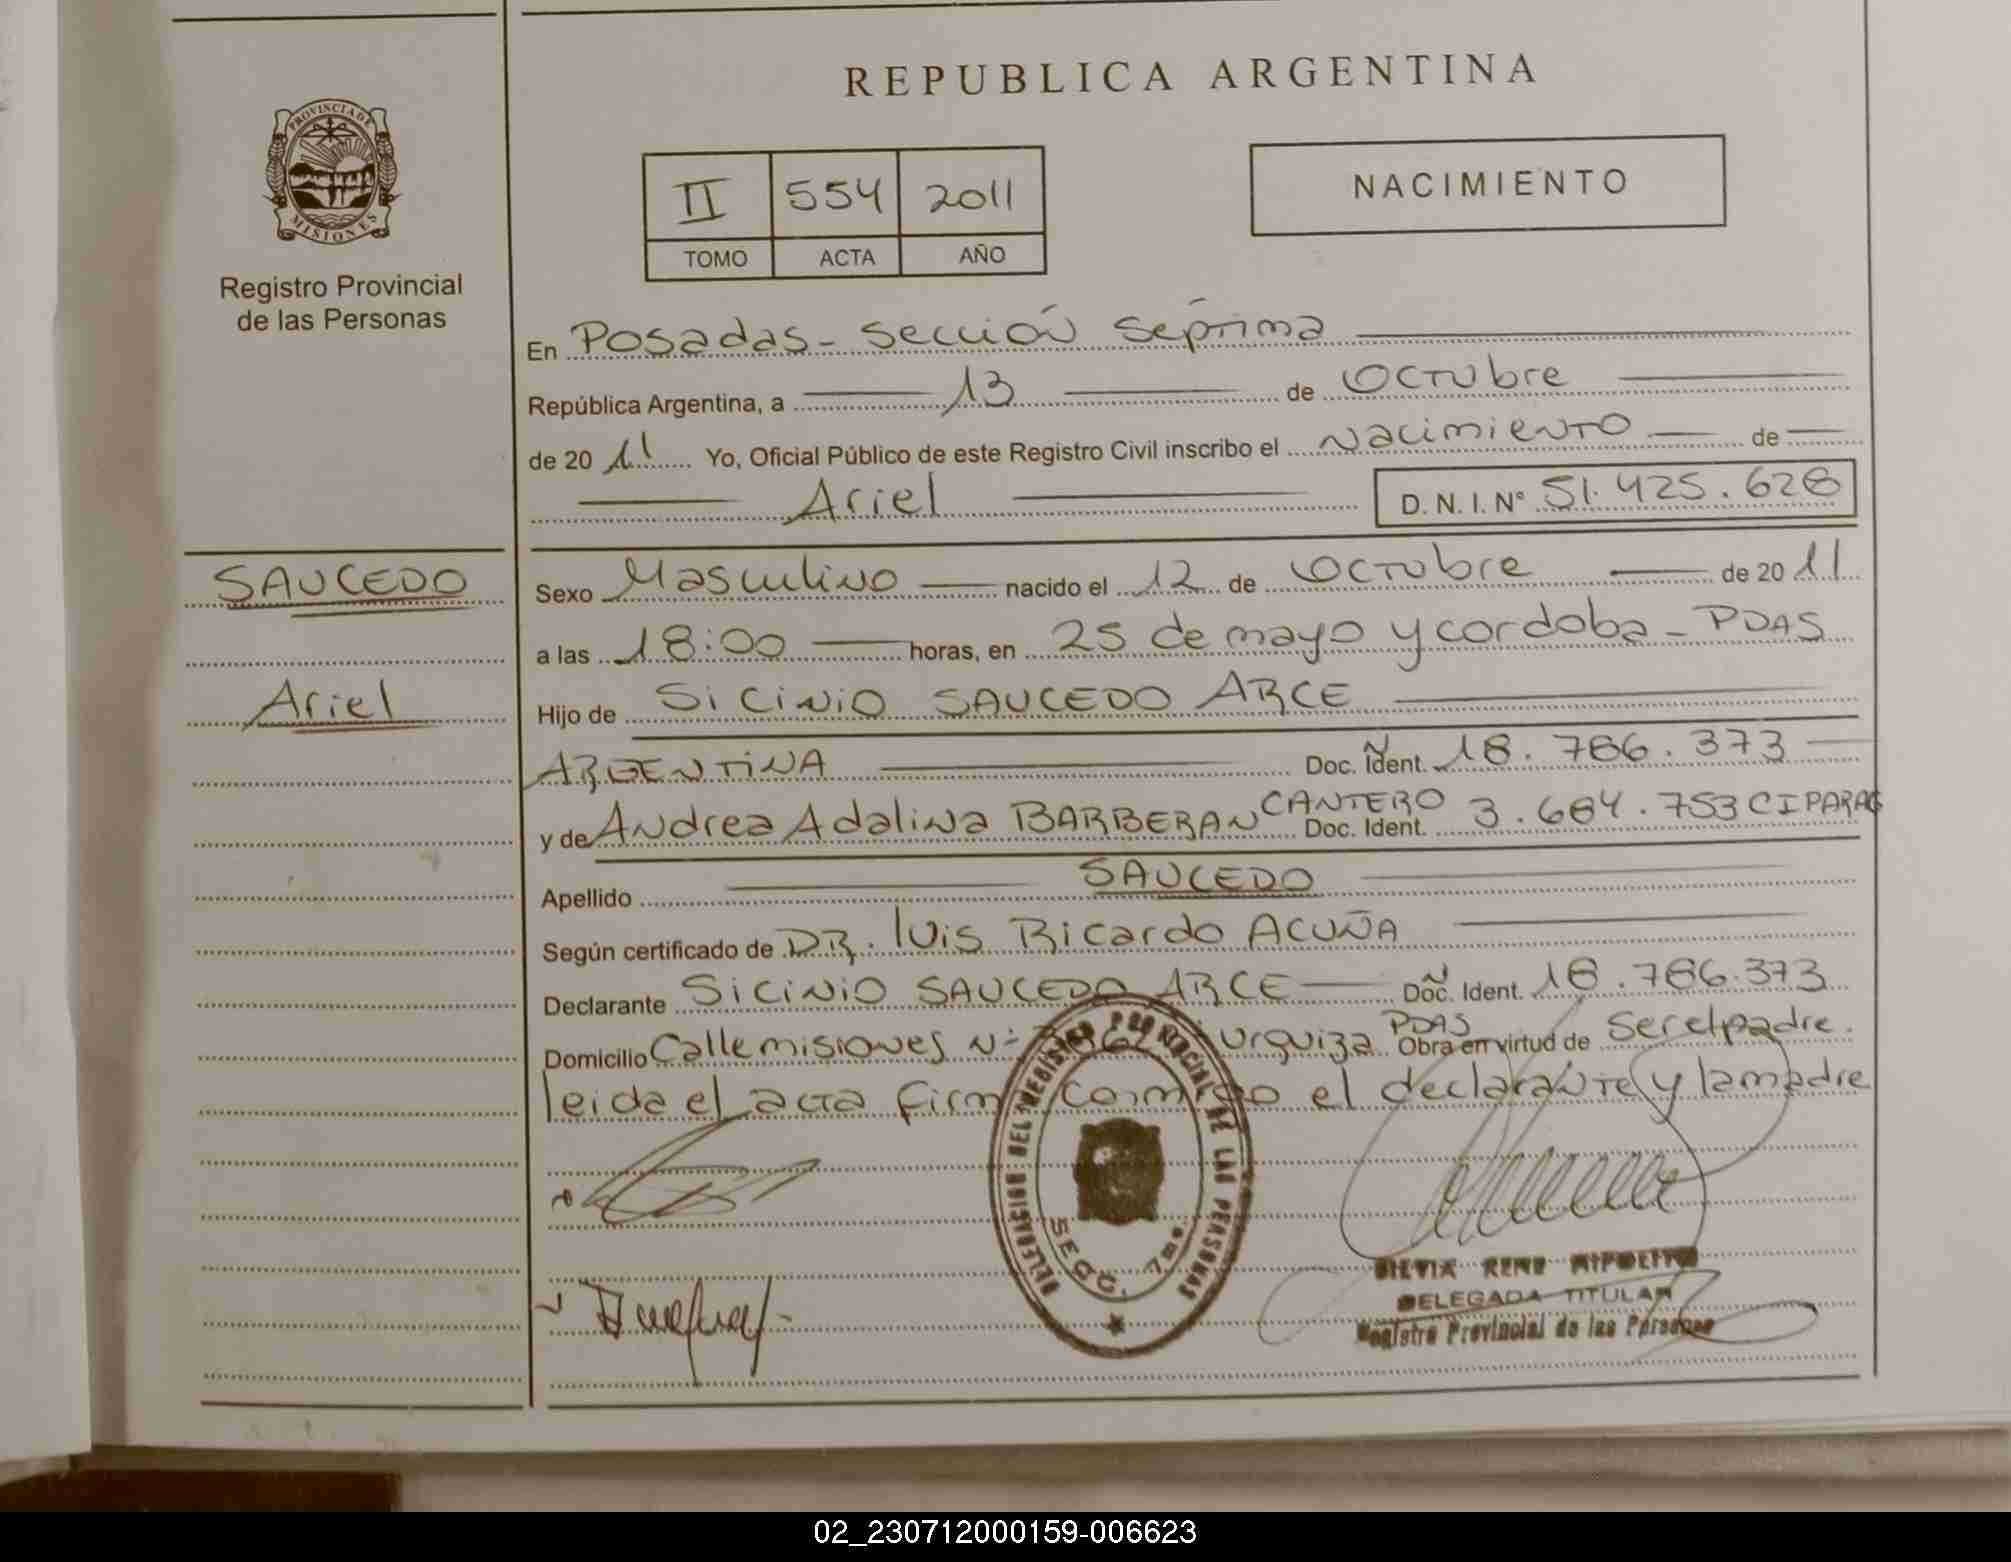 REPUBLICA ARGENTINA
PROVINCIA DE
MISIONES
Registro Provincial
de las Personas
II 554 2011
TOMO ACTA AÑO
NACIMIENTO
En Posadas - Sección Séptima
República Argentina, a 13 de Octubre
de 2011 Yo, Oficial Público de este Registro Civil inscribo el Nacimiento de
Ariel D. N. I. Nº 51.425.628
SAUCEDO
Ariel
Sexo Masculino nacido el 12 de Octubre de 2011
a las 18:00 horas, en 25 de mayo y cordoba - PDAS
Hijo de Sicinio SAUCEDO ARCE
ARGENTINA Doc. Ident. 18.786.373
y de Andrea Adalina BARBERAN CANTERO Doc. Ident. 3.684.753 CIPARAG
Apellido SAUCEDO
Según certificado de DR. luis Ricardo ACUÑA
Declarante Sicinio SAUCEDO ARCE Doc. Ident. 18.786.373
Domicilio Calle misiones Nº Urquiza PDAS Obra en virtud de ser el padre.
leida el acta firma conmigo el declarante y la madre
DELEGACION DEL REGISTRO PROVINCIAL DE LAS PERSONAS
SECC. 7ma.
SILVIA RENE HIPOLITO
DELEGADA TITULAR
Registro Provincial de las Personas
02_230712000159-006623